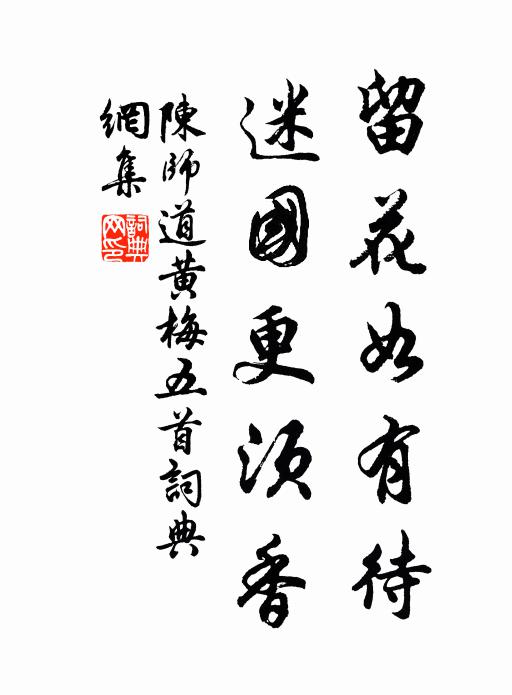 留花如有待
迷國更須香
陳師道黄梅五首詞典
網集
詞典
网印